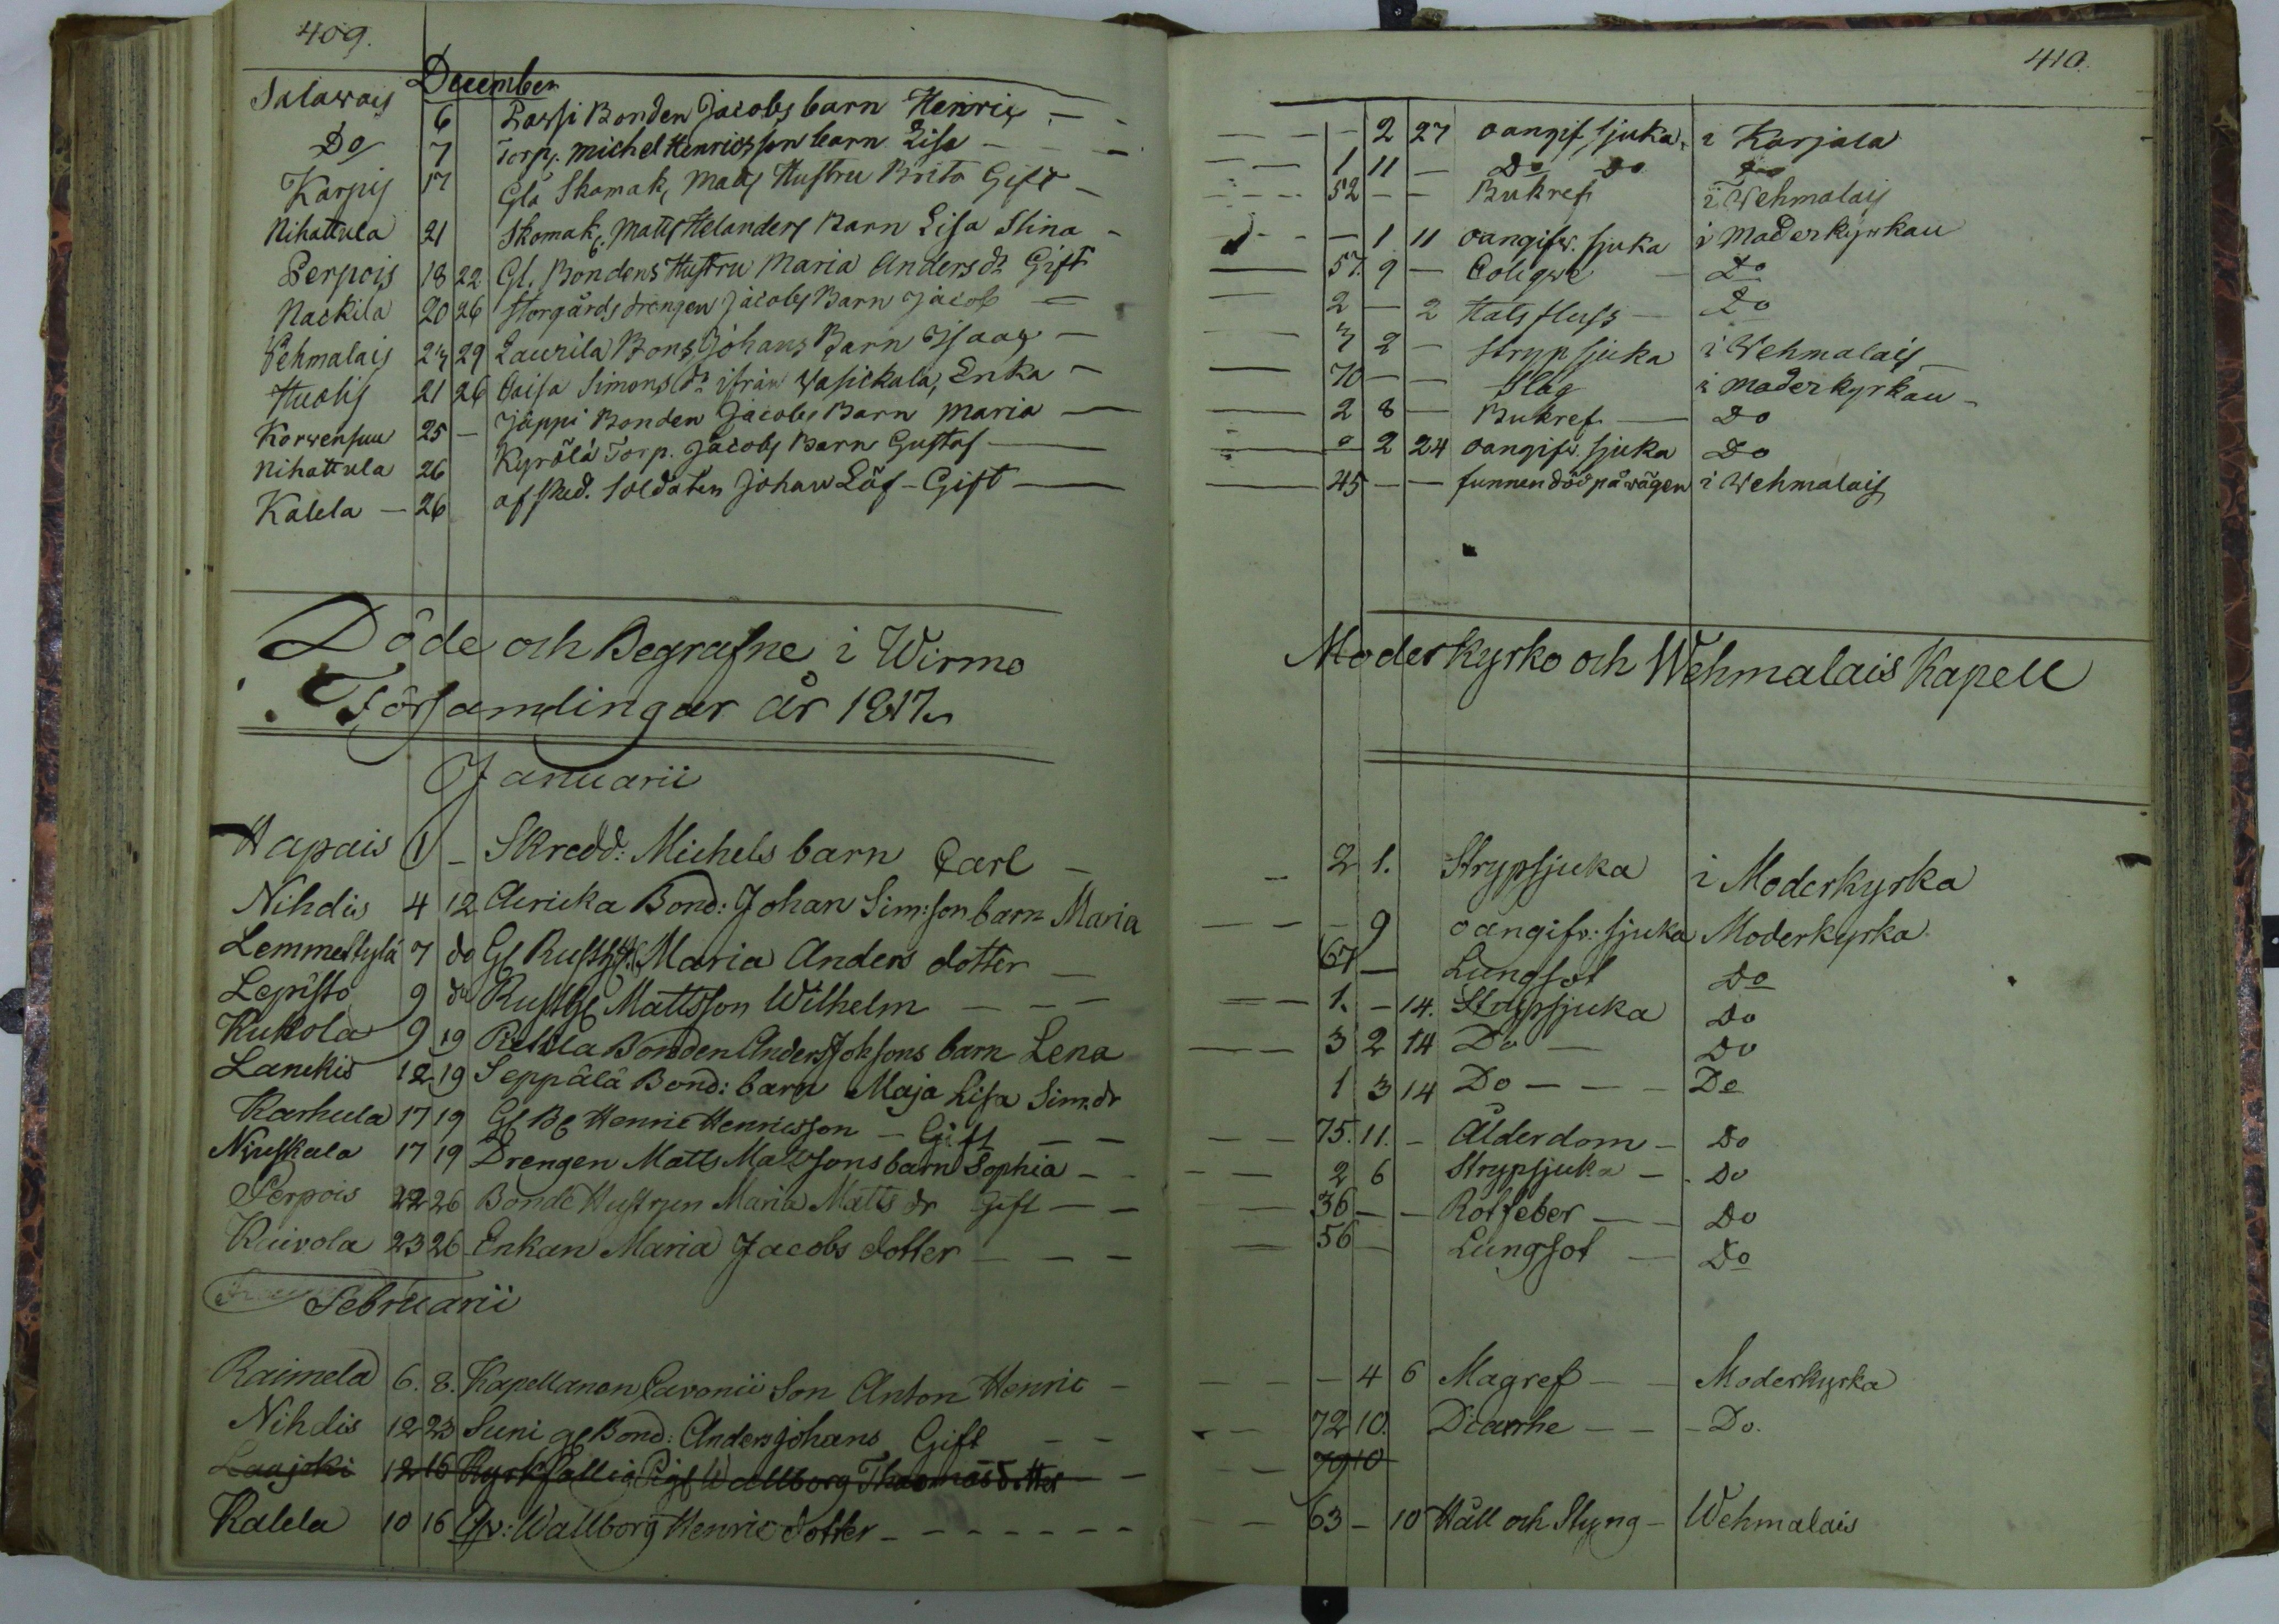 409.
December
Salawais 6 Passi Bonden Jacobs barn Henric
Do 7 Torp. Michel Henricsson barn Lisa
Karpis 17 Gla Skomak, Matts Hustru Brita Gift
Nihattula 21 Skomak. Matts Helanders Barn Lisa Stina
Perpois 18 22 Gl. Bondens Hustru Maria Anders dr Gift
Nackila 20 26 Storgårds drengen Jacobs Barn Jacob
Vehmalais 23 29 Laurila Bons Johans Barn Isaac
Huolis 21 26 Caisa Simons dr ifrån Wasickala, Enka
Korwensuu 25 – Jäppi Bonden Jacobs Barn Maria
Nihattula 26 Kyrölä Torp. Jacobs Barn Gustaf
Kalela – 26 afsked. Soldaten Johan Löf – Gift
Döde och Begrafne i Wirmo
Församlingar år 1817.
Januarii
Hapais 1 – Skredd: Michels barn Carl
Nihdis 4 12 Uricka Bond: Johan Sim:son barn Maria
Lemmettylä 7 do Gl Rusth. Maria Anders dotter
Lepistö 9 do Rusth Mattsson Wilhelm
Kukola 9 19 Pihla Bonden Anders Johsons barn Lena
Lanckis 12 19 Seppälä Bond: barn Maja Lisa Sim. dr
Karhula 17 19 Gl Bd Henric Henricsson – Gift
Niuskala 17 19 Drengen Matts Mattsons barn Sophia
Perpois 22 26 Bonde Hustrun Maria Matts dr Gift
Kaivola 23 26 Enkan Maria Jacobs dotter
Februarii
Raimela 6. 8. Kapellanen Cavonii Son Anton Henric
Nihdis 12 23 Suni gl Bond: Anders Johans Gift
Laajoki 12 16 Kyrkfallig Pig Wallborg Thomasdotter
Kalela 10 16 Wallborg Henric dotter
410.
– 2 27 oangif sjuka, i Karjala
1 11 – Do Do Do
52 – – Bukref i Wehmalais
– 1 11 oangifv. sjuka i Moderkyrkan
57. 9 – Colique – Do
2 – 2 Halsfluss – Do
3 2 – Strypsjuka i Wehmalais
70 – – Slag i Moderkyrkan
2 8 – Bukref – Do
0 2 24 oangifv. sjuka Do
45 – – funnen död på wägen i Wehmalais
Moderkyrko och Wehmalais Kapell
2 1. Strypsjuka i Moderkyrka
– 9 oangifv: sjuka Moderkyrka
67 – Lungsot Do
1. – 14. Strypsjuka Do
3 2 14 Do – Do
1 3 14 Do – – – Do
75. 11. – Ålderdom – Do
2 6 Strypsjuka – Do
36 – – Rötfeber – Do
56 – Lungsot – Do
– 4 6 Magref – Moderkyrka
72 10. Diarrhe – – Do.
79 10
63 – 10 Håll och Styng – Wehmalais